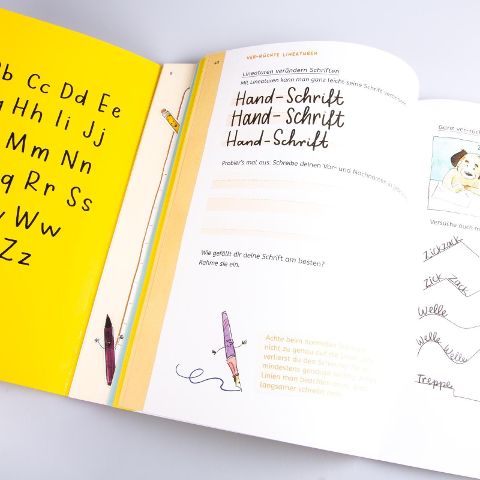 Bb Cc Dd Ee
Hh Ii Jj
Mm Nn
q Rr Ss
Ww
Zz
VER-RÜCKTE LINEATUREN
Lineaturen verändern Schriften
Mit Lineaturen kann man ganz leicht seine Schrift
Hand-Schrift
Hand-Schrift
Hand-Schrift
Probier's mal aus: Schreibe deinen Vor- und Nachnamen in
Wie gefällt dir deine Schrift am besten?
Rahme sie ein.
Achte beim normalen Schreiben
nicht zu genau auf die
verlierst du den
mindestens genauso
Linien man beachten muss,
langsamer schreibt man.
Ganz ver-rückt
Versuche auch m
Zickzack
Zick Zack
Welle
Welle Welle
Treppe